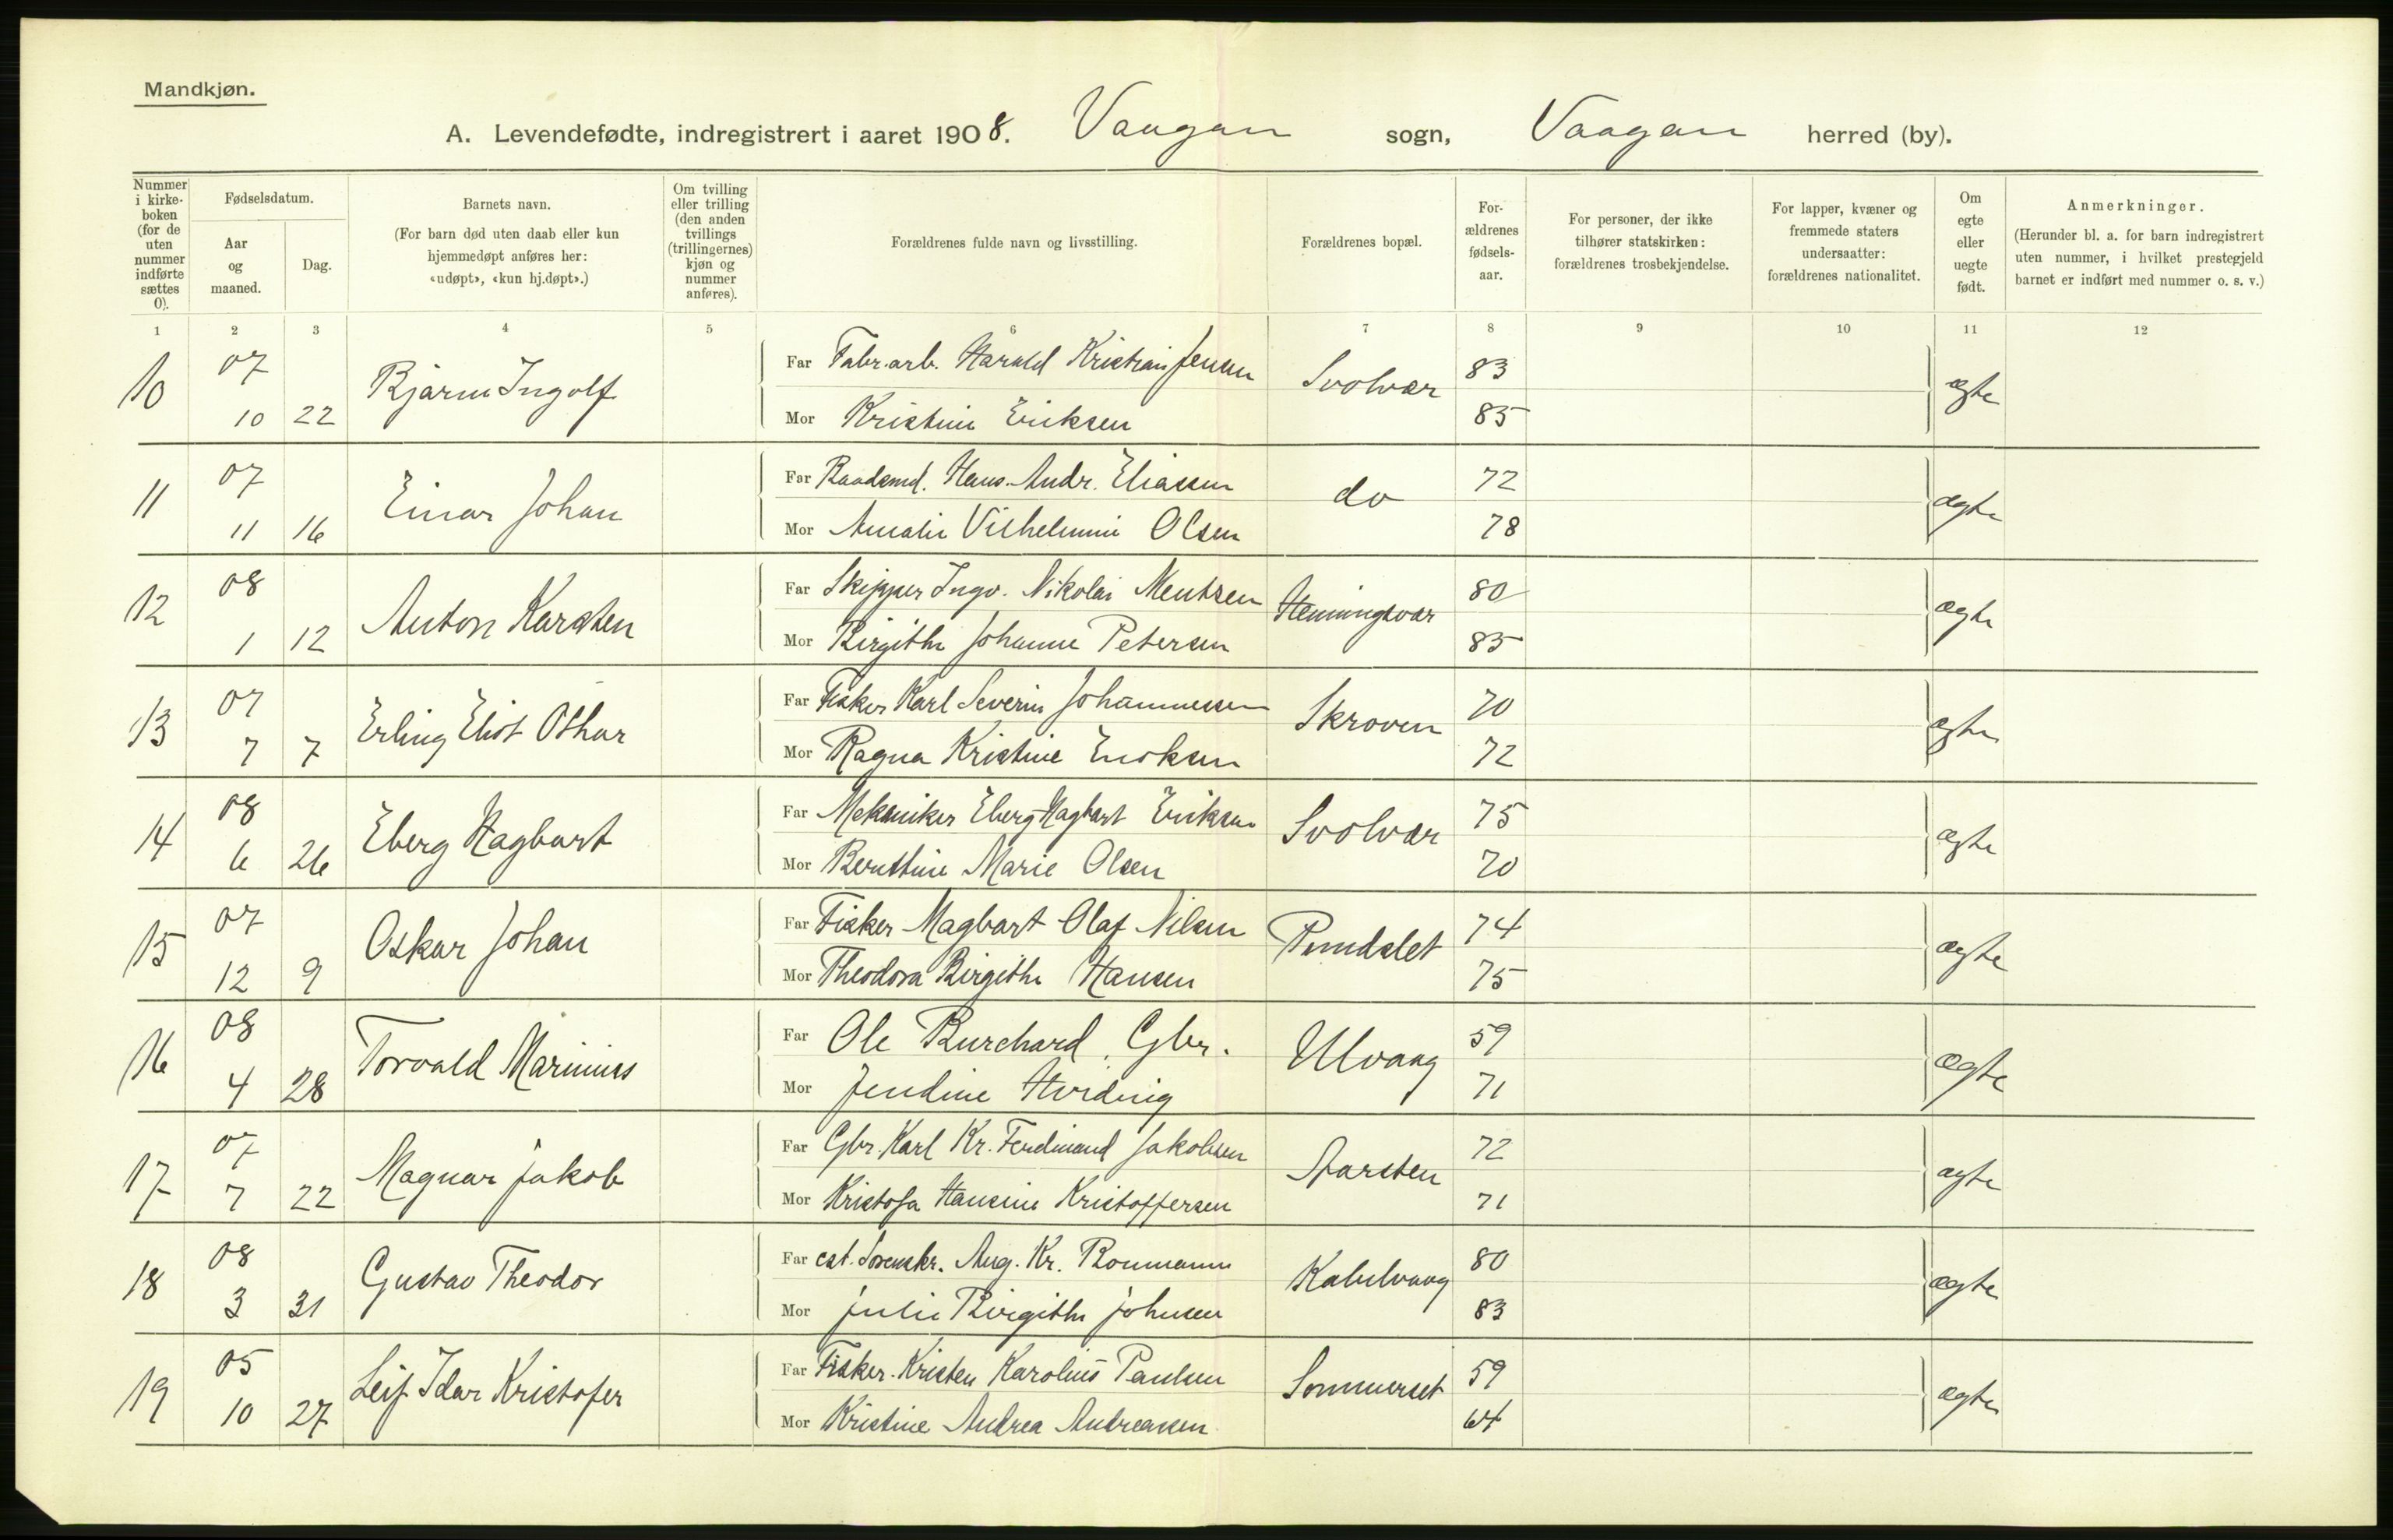 Mandkjøn.
A. Levendefødte, indregistrert i aaret 1908. Vaagan sogn, Vaagan herred (by).
Nummer i kirke-boken (for de uten nummer indførte sættes 0).
Fødselsdatum.
Aar og maaned.
Dag.
Barnets navn.
(For barn død uten daab eller kun hjemmedøpt anføres her: «udøpt», «kun hj.døpt».)
Om tvilling eller trilling (den anden tvillings (trillingernes) kjøn og nummer anføres).
Forældrenes fulde navn og livsstilling.
Forældrenes bopæl.
For-ældrenes fødsels-aar.
For personer, der ikke tilhører statskirken: forældrenes trosbekjendelse.
For lapper, kvæner og fremmede staters undersaatter: forældrenes nationalitet.
Om egte eller uegte født.
Anmerkninger.
(Herunder bl. a. for barn indregistrert uten nummer, i hvilket prestegjeld barnet er indført med nummer o. s. v.)
1 2 3 4 5 6 7 8 9 10 11 12
10 07 Bjarne Ingolf Far Fabr.arb. Harald Kristian Jensen Svolvær 83 ægte
10 22 Mor Kristine Eriksen 85
11 07 Einar Johan Far Baadsmd. Hans Andr. Eliassen do 72 ægte
11 16 Mor Amalie Vilhelmine Olsen 78
12 08 Anton Karsten Far Skipper Ingv. Nikolai Mentzen Henningsvær 80 ægte
1 12 Mor Birgithe Johanne Petersen 85
13 07 Erling Eliot Othar Far Fisker Karl Severin Johannessen Skroven 70 ægte
7 7 Mor Ragna Kristine Enoksen 72
14 08 Eberg Hagbart Far Mekaniker Eberg Hagbart Eriksen Svolvær 75 ægte
6 26 Mor Bernthine Marie Olsen 70
15 07 Oskar Johan Far Fisker Magbart Olaf Nilsen Pundslet 74 ægte
12 9 Mor Theodora Birgithe Hansen 75
16 08 Torvald Marinius Far Ole Burchard, Gbr. Ulvaag 59 ægte
4 28 Mor Jendine Hveding 71
17 07 Magnar Jakob Far Gbr. Karl Kr. Ferdinand Jakobsen 72 ægte
7 22 Mor Kristofa Hansine Kristoffersen 71
18 08 Gustav Theodor Far Aug. Kr. Kabelvaag 80 ægte
3 31 Mor Julie Birgithe Johnsen 83
19 05 Leif Idar Kristofer Far Fisker Kristen Karolius Paulsen Sommerset 59 ægte
10 27 Mor Kristine Andrea Andreassen 64